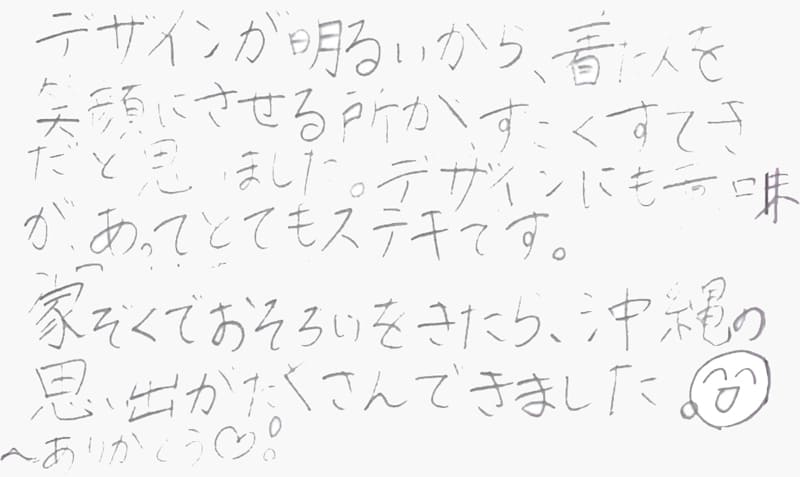 デザインが明るいから、着た人を
笑顔にさせる所が、すごくすてき
だと思いました。デザインにも意味
が、あってとてもステキです。
家ぞくでおそろいをきたら、沖縄の
思い出がたくさんできました。
〜ありがとう♡!